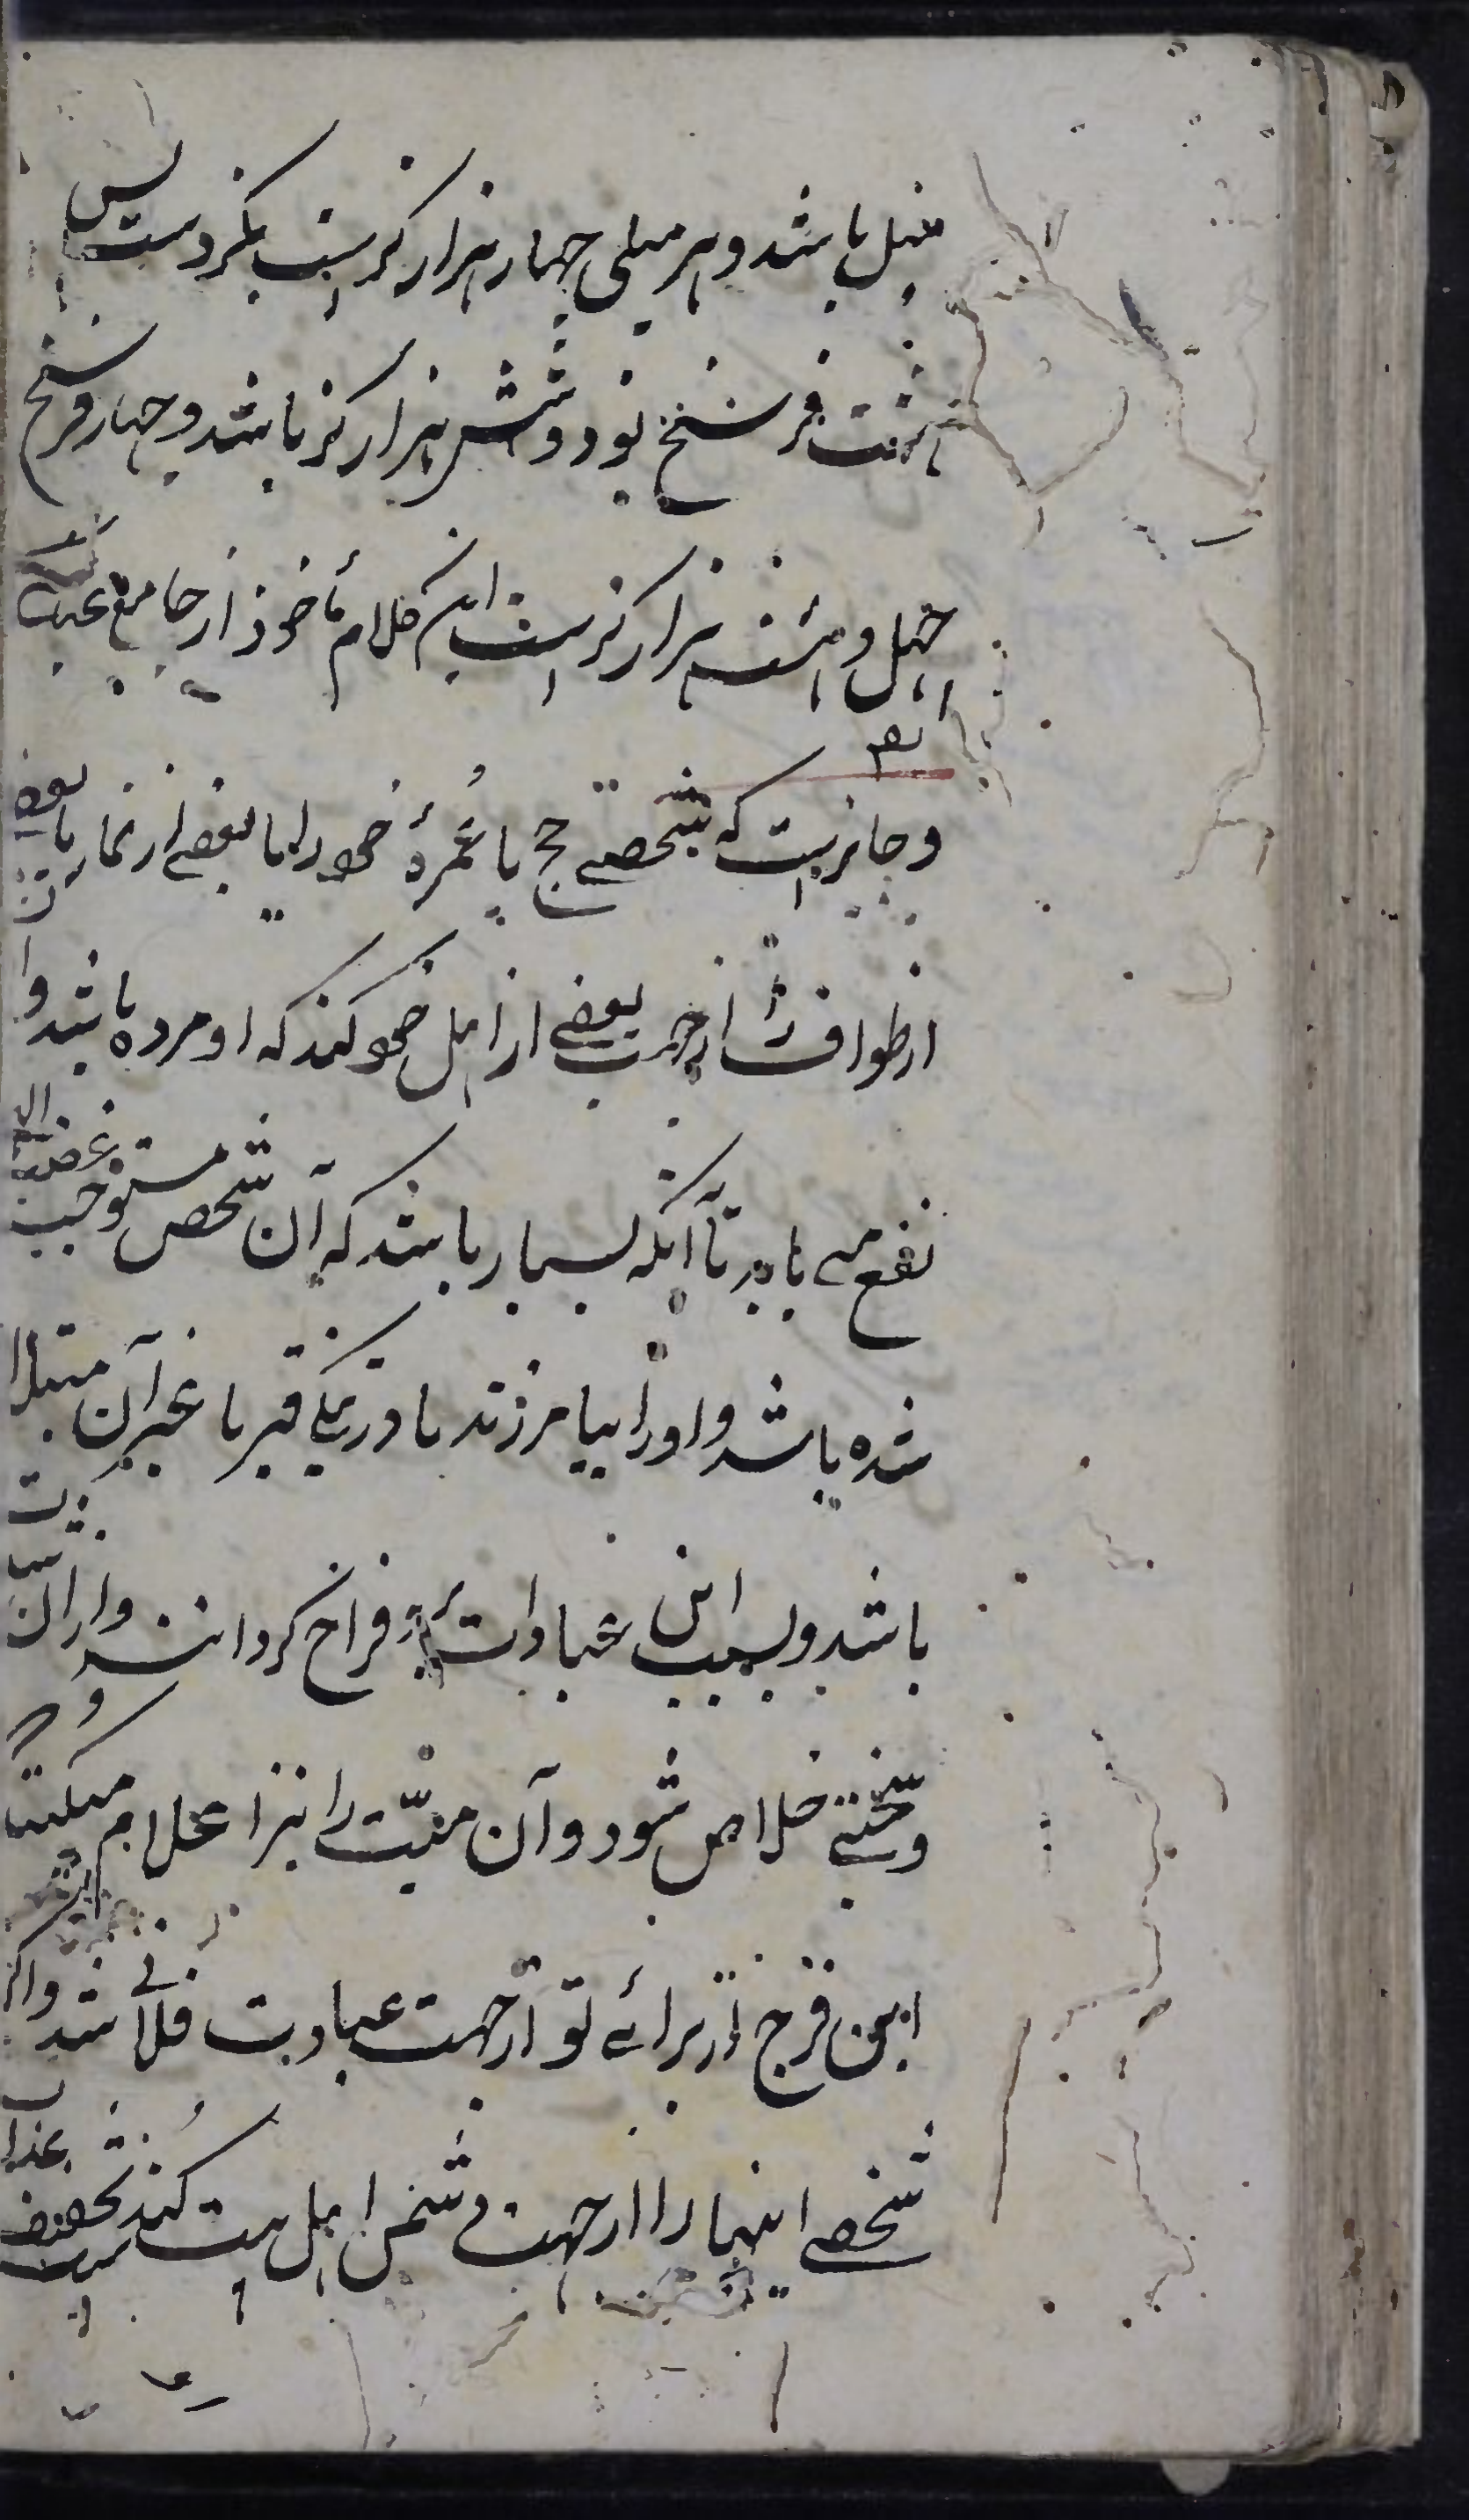 میل باشد و هر میلی چهار هزار کز است بکز دست پس
هشت فرسخ نود و شش هزار کز باشد و چهار فرسخ
چهل و هشت هزار کز است این کلام مأخوذ از جامع عباسی
و جایز است که شخصے حج یا عُمرۀ خود را یا بعضے از نماز یا بعضے
از طواف را از جهت بعضے از اهل خود کند که او مرده باشد و او
نفع مے یابد تا آنکه بسیار باشد که آن شخص مستوجب غضب الهی
شده باشد و او را بیامرزند یا در تنکی قبر یا غیر آن مبتلا
باشد و بسبب این عبادات فراخ کردانند و از آن
و سختے خلاص شود و آن میّت را نیز اعلام میکنند که
این فرج از برائے تو از جهت عبادت فلانے شد و اکر
شخصے اینها را از جهت دشمن اهل بیت کند تخفیف عذاب